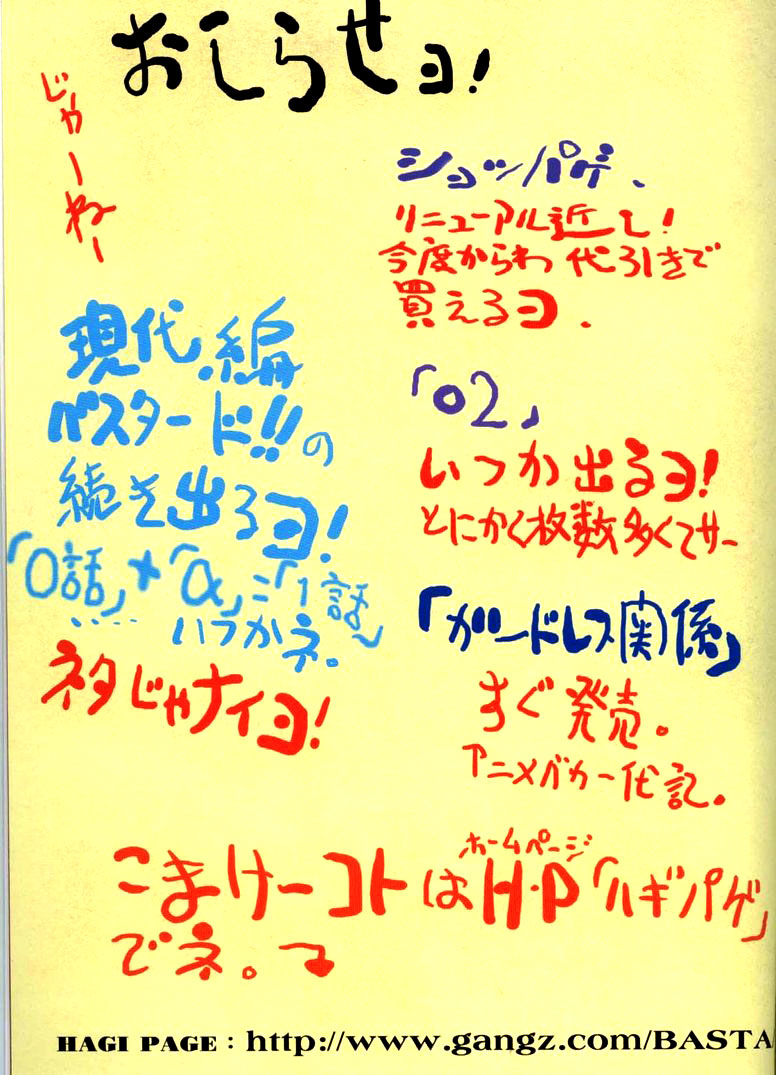 おしらせヨ!
ショッパゲ、
リニューアル近し!
今度からわ 代引きで
買えるヨ.
「02」
いつか出るヨ!
とにかく枚数多くてサー
「ガードレス関係」
すぐ発売。
アニメバカ一代記.
じゃーねー
現代編
バスタード!!の
続き出るヨ!
「0話」+「α」=「1話~
・・・・・いつかネ。
ネタじゃナイヨ!
こまけーコトはH・P「ハギパゲ」
ホームページ
でネ。
HAGI PAGE : http://www.gangz.com/BASTA